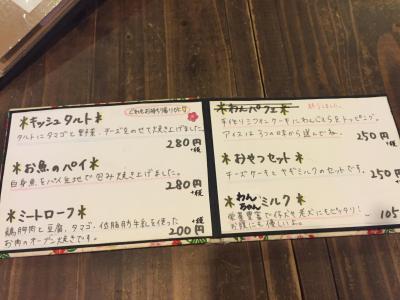 ＊キッシュタルト＊
タルトにタマゴと野菜、チーズをのせて焼き上げました。
280円
+税
＊お魚のパイ＊
白身魚をパイ生地で包み焼き上げました。
280円
+税
＊ミートローフ＊
鶏胸肉と豆腐、タマゴ、低脂肪牛乳を使った
お肉のオーブン焼きです。
+税
200円
＊わんパフェ＊ 終了しました。
手作りシフォンケーキにわんこぐちをトッピング。
アイスは3つの味から選んでね。
250円
+税
＊おやつセット＊
チーズケーキとヤギミルクのセットです。
250円
+税
＊わんちゃんミルク＊
栄養豊富で仔犬や老犬にもピッタリ!
お腹にも優しいよ。
105